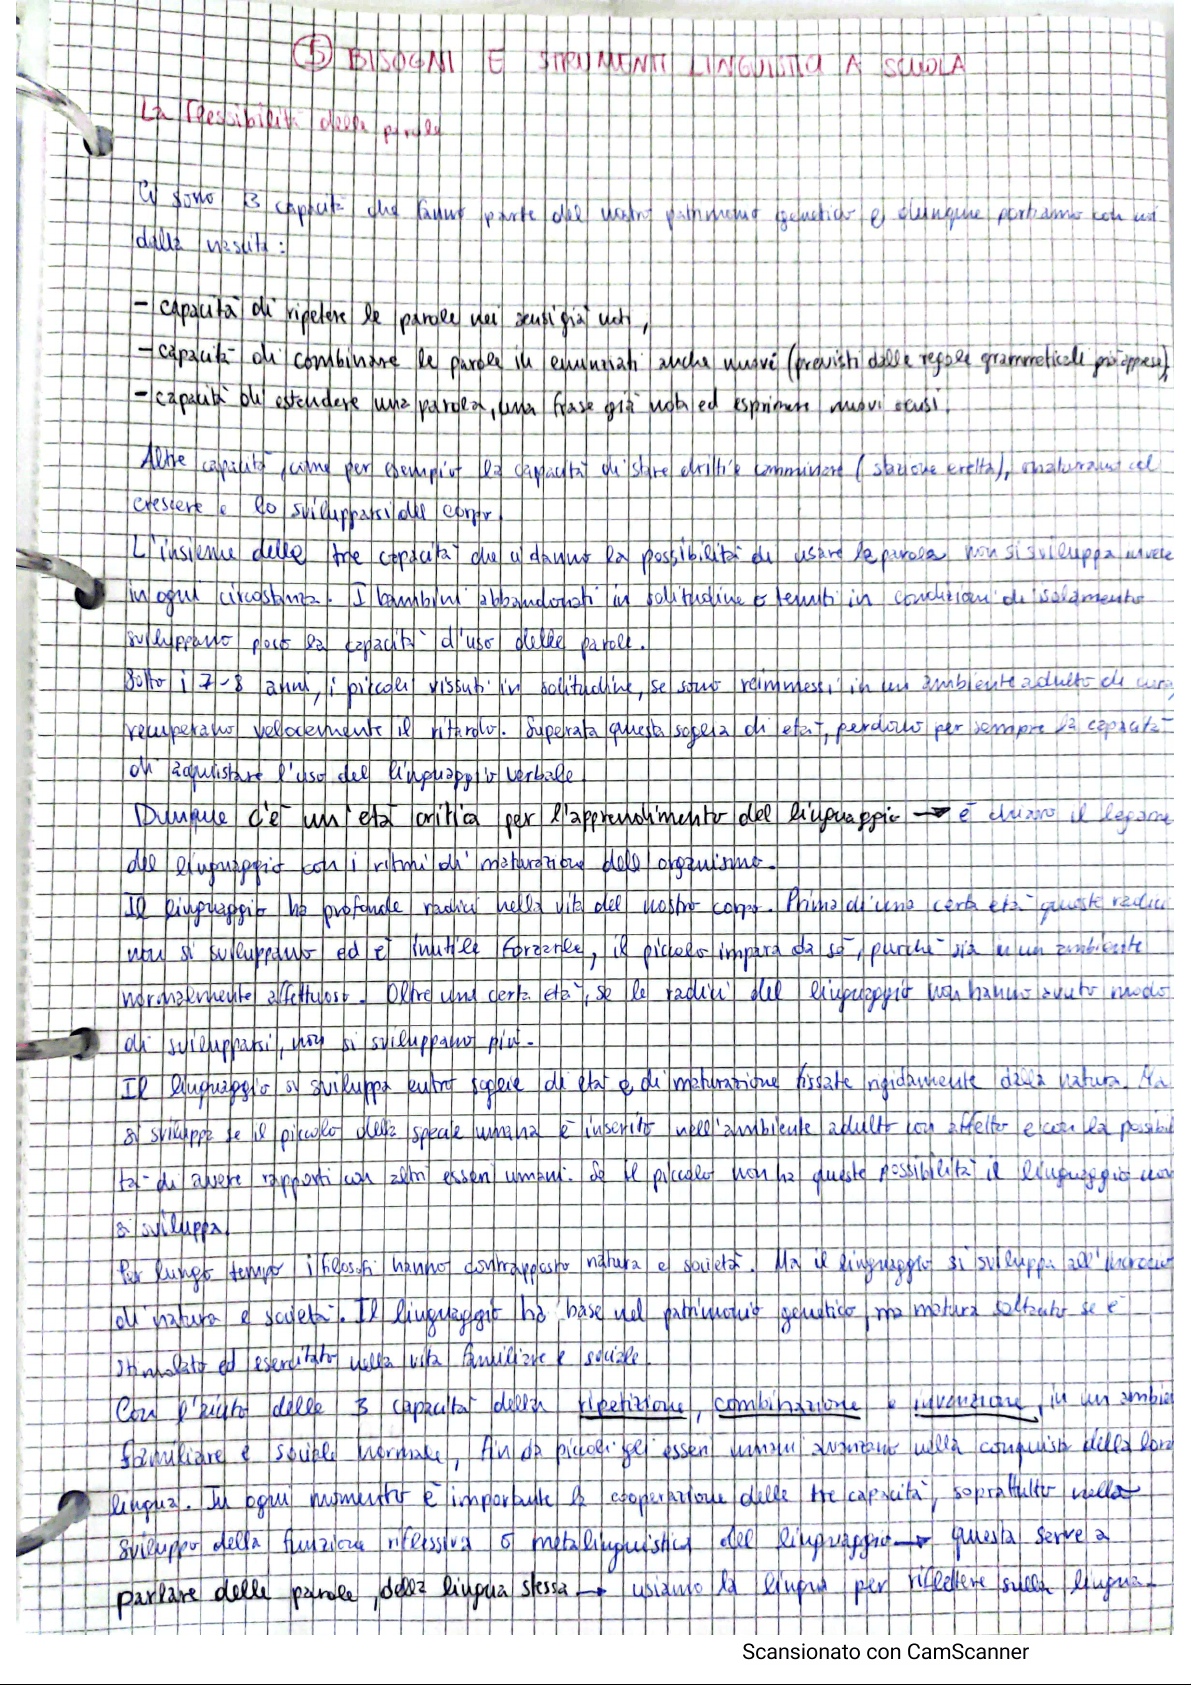 5 BISOGNI E STRUMENTI LINGUISTICI A SCUOLA
La flessibilità delle parole
Ci sono 3 capacità che fanno parte del nostro patrimonio genetico e dunque portiamo con noi
dalla nascita:
- capacità di ripetere le parole nei sensi già noti,
- capacità di combinare le parole in enunciati anche nuovi (previsti dalle regole grammaticali già apprese),
- capacità di estendere una parola, una frase già nota ed esprimere nuovi sensi.
Altre capacità, come per esempio la capacità di stare dritti e camminare (stazione eretta), maturano col
crescere e lo svilupparsi del corpo.
L'insieme delle tre capacità che ci danno la possibilità di usare le parole non si sviluppa invece
in ogni circostanza. I bambini abbandonati in solitudine o tenuti in condizioni di isolamento
sviluppano poco la capacità d'uso delle parole.
Sotto i 7-8 anni, i piccoli vissuti in solitudine, se sono reimmessi in un ambiente adulto di cura,
recuperano velocemente il ritardo. Superata questa soglia di età, perdono per sempre la capacità
di acquistare l'uso del linguaggio verbale
Dunque c'è un'età critica per l'apprendimento del linguaggio → è chiaro il legame
del linguaggio con i ritmi di maturazione dell'organismo.
Il linguaggio ha profonde radici nella vita del nostro corpo. Prima di una certa età queste radici
non si sviluppano ed è inutile forzarle, il piccolo impara da sé, purché sia in un ambiente
normalmente affettuoso. Oltre una certa età, se le radici del linguaggio non hanno avuto modo
di svilupparsi, non si sviluppano più.
Il linguaggio si sviluppa entro soglie di età e di maturazione fissate rigidamente dalla natura. Ma
si sviluppa se il piccolo della specie umana è inserito nell'ambiente adulto con affetto e con la possibili
tà di avere rapporti con altri esseri umani. Se il piccolo non ha queste possibilità il linguaggio non
si sviluppa.
Per lungo tempo i filosofi hanno contrapposto natura e società. Ma il linguaggio si sviluppa all'incrocio
di natura e società. Il linguaggio ha base nel patrimonio genetico, ma matura soltanto se è
stimolato ed esercitato nella vita familiare e sociale.
Con l'aiuto delle 3 capacità della ripetizione, combinazione e invenzione, in un ambie
familiare e sociale normale, fin da piccoli gli esseri umani avanzano nella conquista della loro
lingua. In ogni momento è importante la cooperazione delle tre capacità, soprattutto nello
sviluppo della funzione riflessiva o metalinguistica del linguaggio → questa serve a
parlare delle parole, della lingua stessa → usiamo la lingua per riflettere sulla lingua.
Scansionato con CamScanner